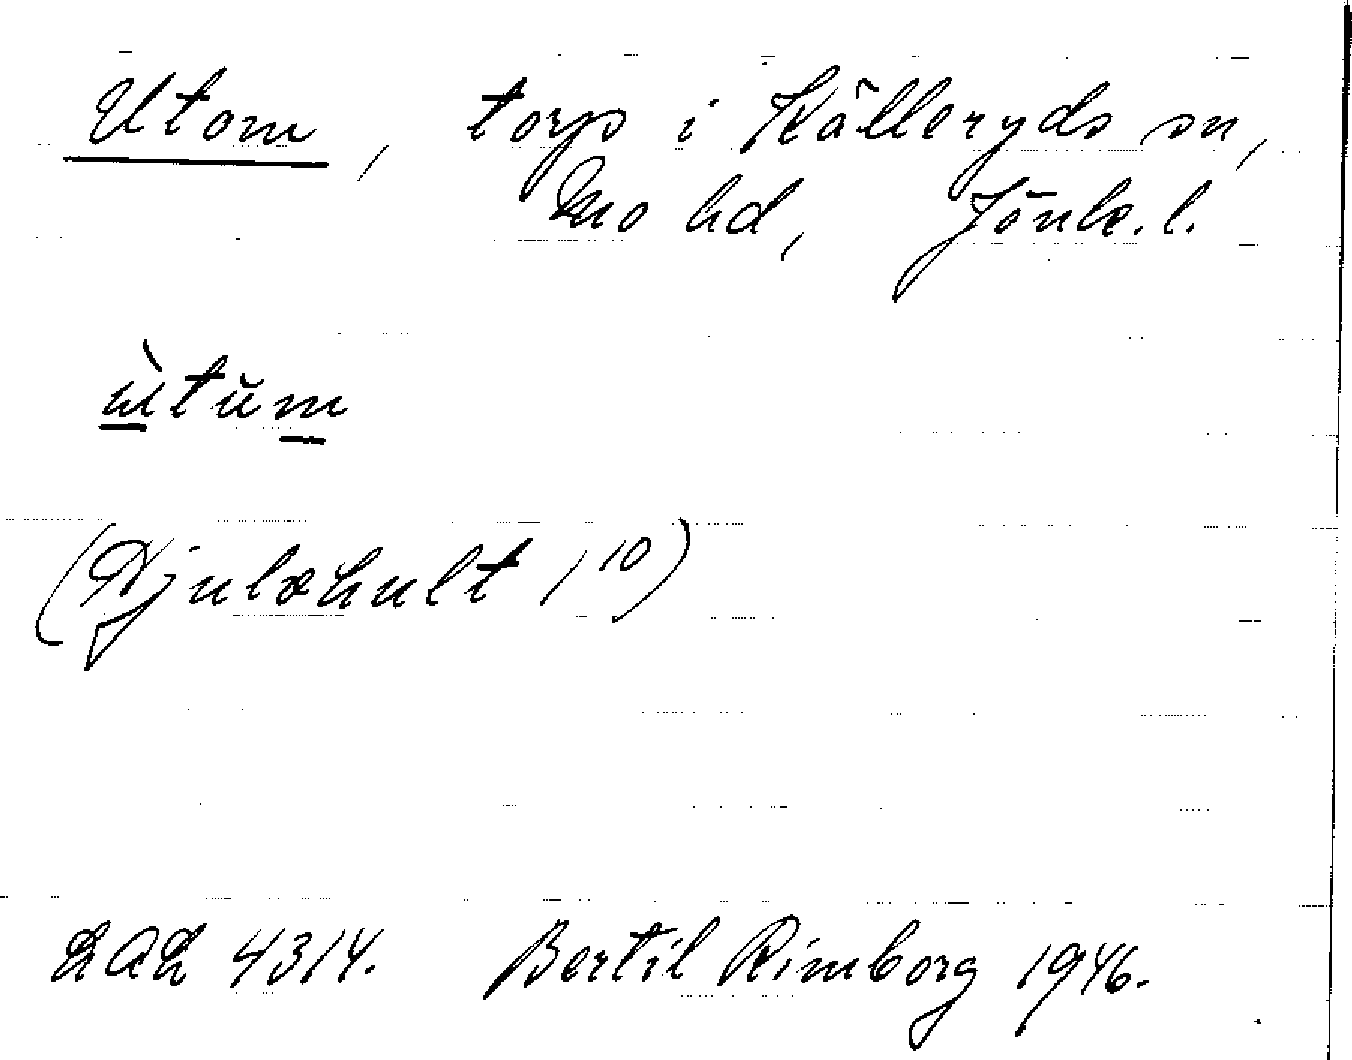 Utom, torp i Kålleryds sn,
Mo hd, Jönk. l.
ùtŭm
(Djulahult 1/10)
LAL 4314. Bertil Rimborg 1946.